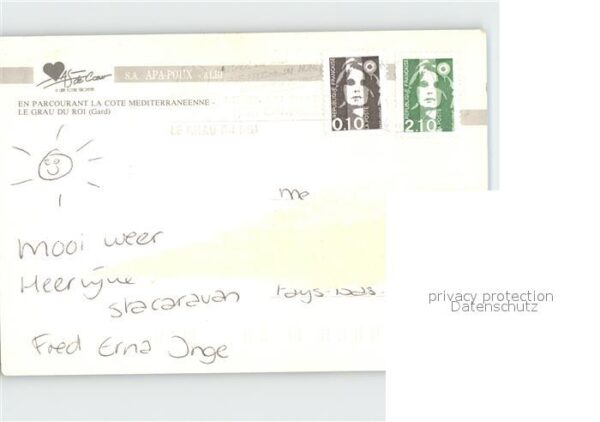 As de Cœur
S.A. APA-POUX - ALBI
EN PARCOURANT LA COTE MEDITERRANEENNE -
LE GRAU DU ROI (Gard)
REPUBLIQUE FRANÇAISE
LA POSTE
0,10
REPUBLIQUE FRANÇAISE
LA POSTE
2,10
LE GRAU DU ROI
me
Mooi weer
Heerlijke
stacaravan
Pays-Bas-
Fred Erna Inge
privacy protection
Datenschutz